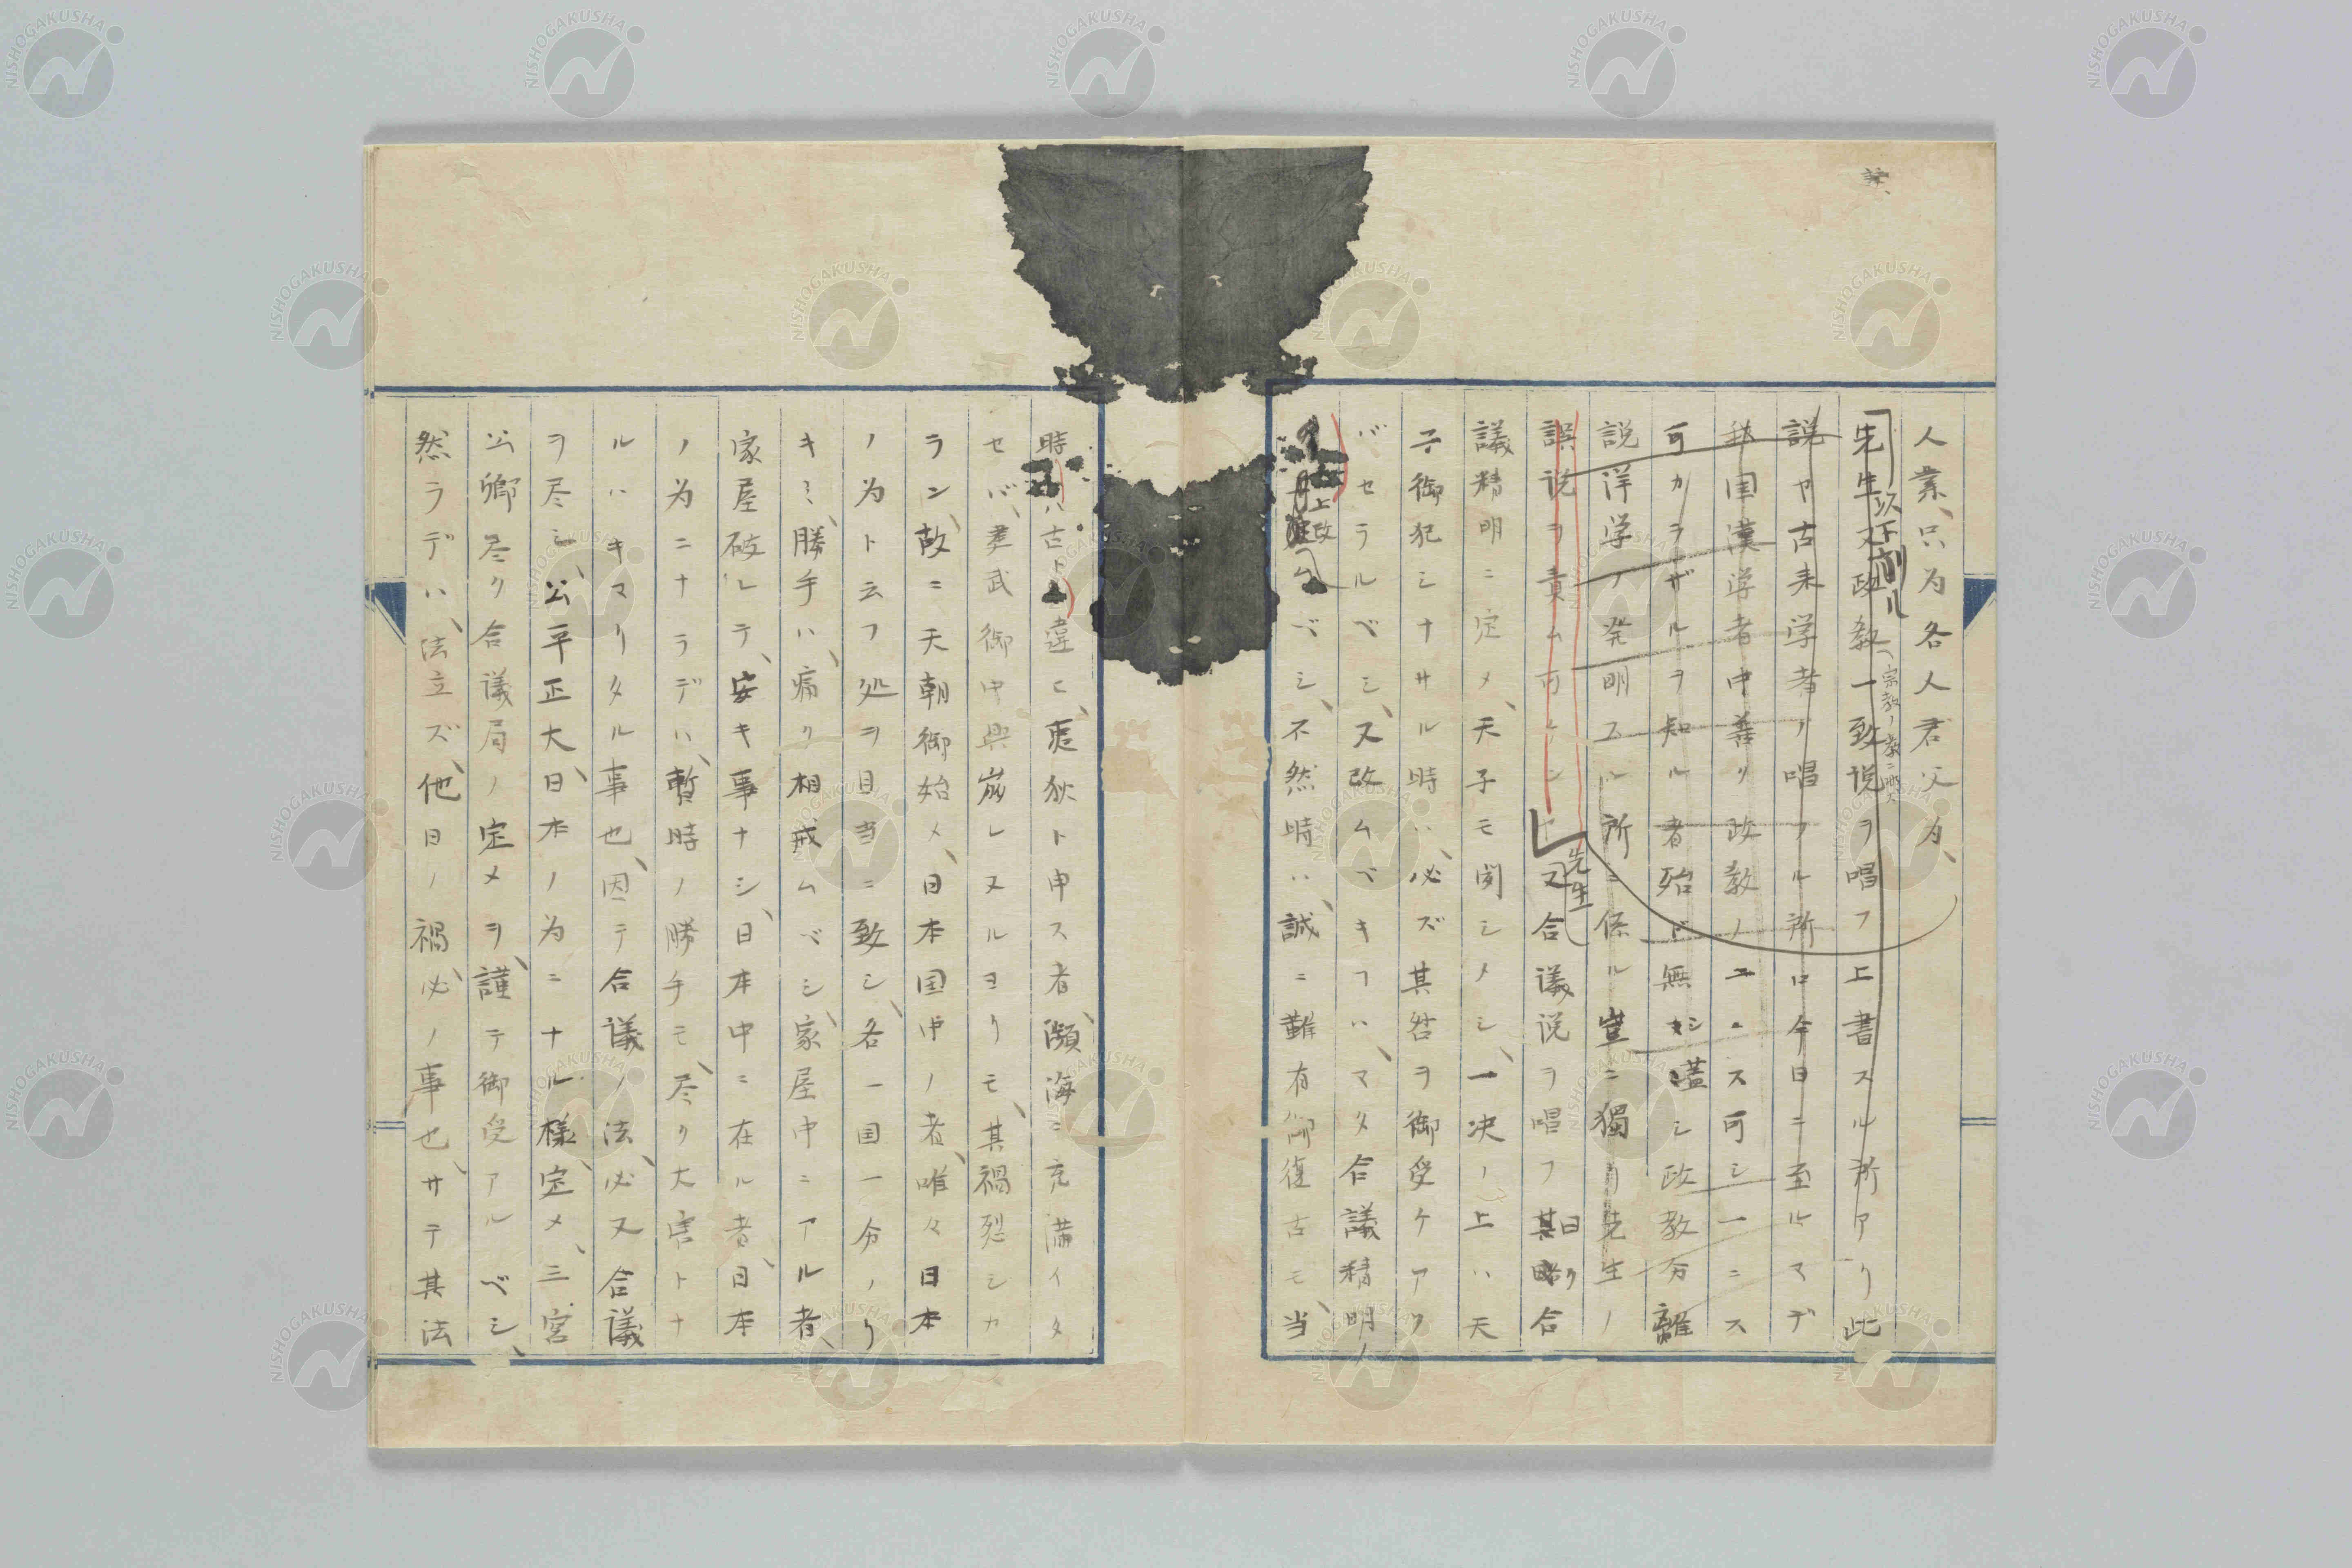 人業、只為各人君父為、
先生又政教一致説ヲ唱フ上書スル所アリ此
以下削ル
説ヤ古来学者ノ唱フル所ロ今日ニ至ルマデ
我国漢学者中善ク政教ノ ニス可シ一ニス
可カラザルヲ知ル者殆ド無シ蓋シ政教分離
説洋学ノ発明スル所ニ係ル豈ニ獨リ先生ノ
誤説ヲ責ム可 ンヤ又合議説ヲ唱フ其略ク合
先生
曰
議精明ニ定メ、天子モ関シノシ、一決ノ上ハ天
子御犯シナサル時ハ、必ズ其咎ヲ御受ケアソ
バセラルベシ、又改ムベキフハ、マタ合議精明ノ
上改ムベシ、不然時ハ、誠ニ難有御復古モ、当
時ハ古ト違ヒ、夷狄ト申ス者、瀕海ニ充満イタ
セバ、建武御中興崩レヌルヨリモ、其禍烈シカ
ラン、故ニ天朝御始メ、日本国中ノ者、唯々日本
ノ為ト云フ処ヲ目当ニ致シ、各一国一分ノリ
キミ、勝手ハ、痛ク相戒ムベシ、家屋中ニアル者、
家屋破レテ、安キ事ナシ、日本中ニ在ル者、日本
ノ為ニナラデハ、暫時ノ勝手モ、尽ク大害トナ
ルハキマリタル事也、因テ合議ノ法、必又合議
ヲ尽シ、公平正大、日本ノ為ニナル様定メ、三宮
公卿尽ク合議局ノ定メヲ、謹テ御受アルベシ、
然ラデハ、法立ズ、他日ノ禍必ノ事也、サテ其法
NISHOGAKUSHA